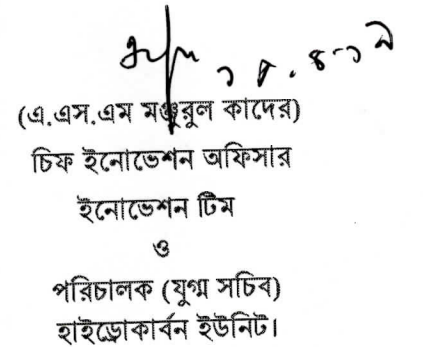 ১৪.৪.১৯
(এ.এস.এম মঞ্জুরুল কাদের)
চিফ ইনোভেশন অফিসার
ইনোভেশন টিম
ও
পরিচালক (যুগ্ম সচিব)
হাইড্রোকার্বন ইউনিট।